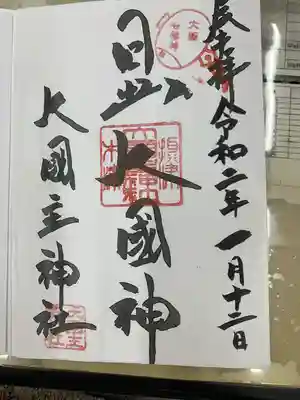 大阪
七福神
奉拝 令和二年一月十二日
日出大國神
大國主神社